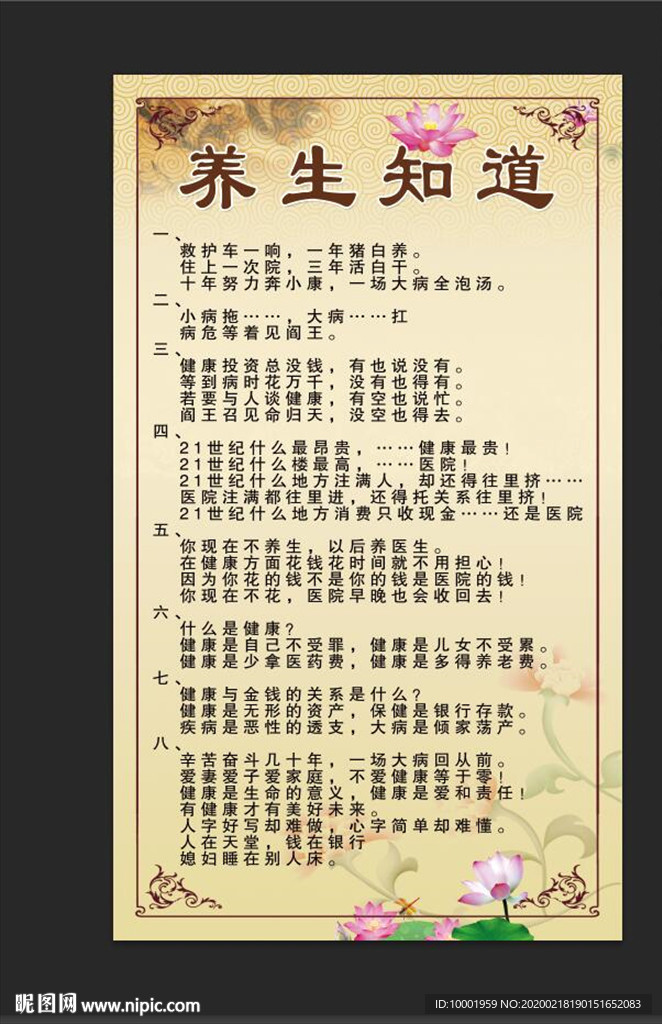 养生知道
一、
救护车一响，一年猪白养。
住上一次院，三年活白干。
十年努力奔小康，一场大病全泡汤。
二、
小病拖……，大病……扛
病危等着见阎王。
三、
健康投资总没钱，有也说没有。
等到病时花万千，没有也得有。
若要与人谈健康，有空也说忙。
阎王召见命归天，没空也得去。
四、
21世纪什么最昂贵，……健康最贵！
21世纪什么楼最高，……医院！
21世纪什么地方注满人，却还得往里挤……
医院注满都往里进，还得托关系往里挤！
21世纪什么地方消费只收现金……还是医院
五、
你现在不养生，以后养医生。
在健康方面花钱花时间就不用担心！
因为你花的钱不是你的钱是医院的钱！
你现在不花，医院早晚也会收回去！
六、
什么是健康？
健康是自己不受罪，健康是儿女不受累。
健康是少拿医药费，健康是多得养老费。
七、
健康与金钱的关系是什么？
健康是无形的资产，保健是银行存款。
疾病是恶性的透支，大病是倾家荡产。
八、
辛苦奋斗几十年，一场大病回从前。
爱妻爱子爱家庭，不爱健康等于零！
健康是生命的意义，健康是爱和责任！
有健康才有美好未来。
人字好写却难做，心字简单却难懂。
人在天堂，钱在银行
媳妇睡在别人床。
昵图网 www.nipic.com
ID:10001959 NO:20200218190151652083